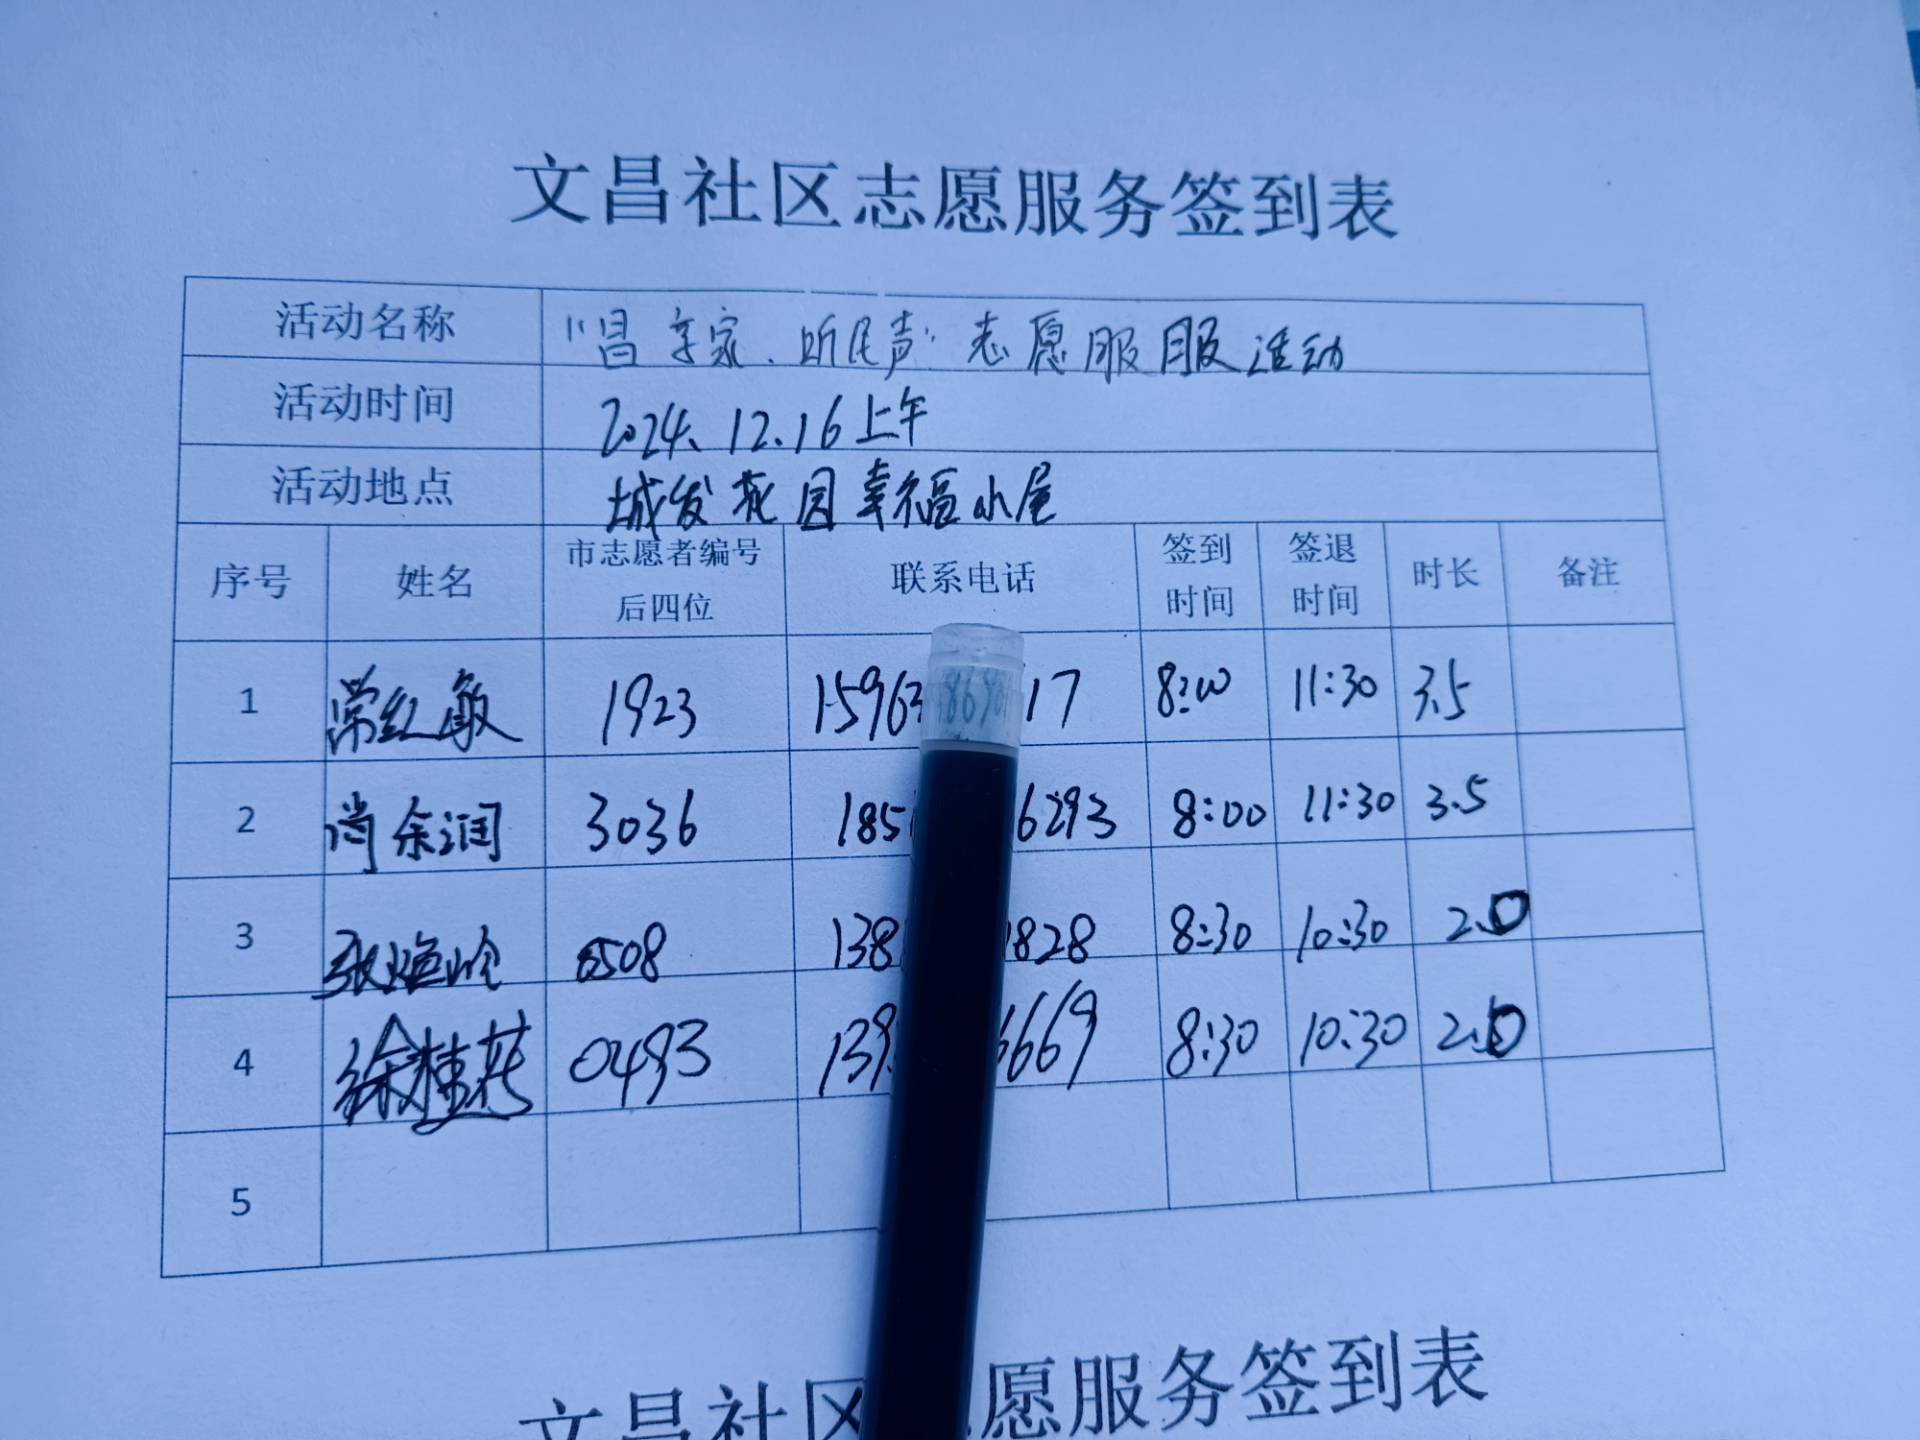 文昌社区志愿服务签到表
活动名称 “昌 家、听民声”志愿服服活动
活动时间 2024、12.16上午
活动地点 城发花园幸福小屋
序号 姓名 市志愿者编号后四位 联系电话 签到时间 签退时间 时长 备注
1 常红敏 1923 15963 17 8:00 11:30 3.5
2 尚余润 3036 185 6293 8:00 11:30 3.5
3 张 岭 0508 138 1828 8:30 10:30 2.0
4 徐桂花 0493 139 6669 8:30 10:30 2.0
5
文昌社区 愿服务签到表